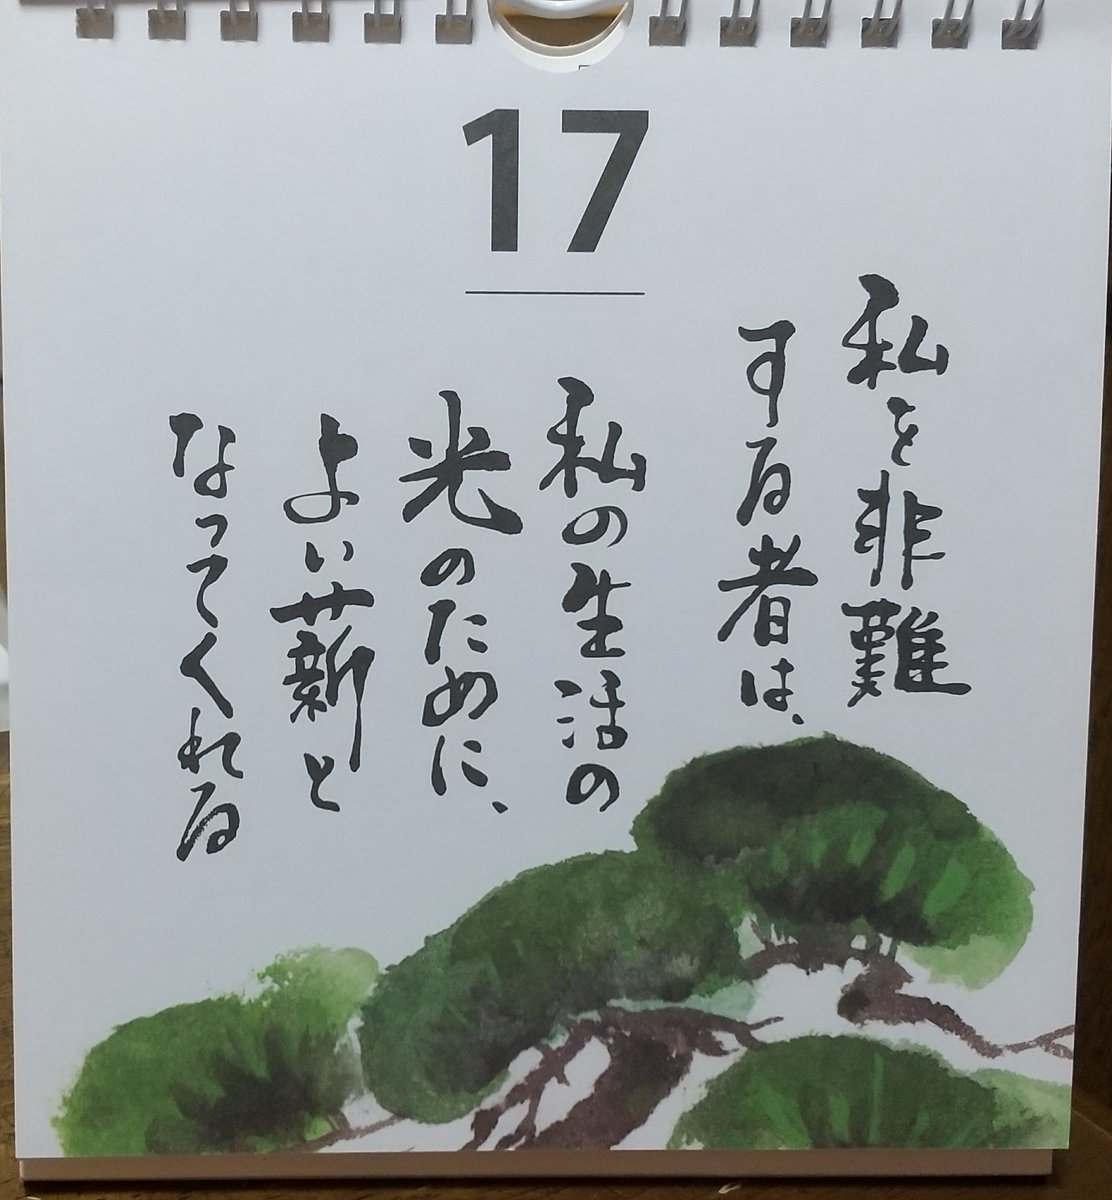 17
私を非難
する者は、
私の生活の
光のために、
よい薪と
なってくれる